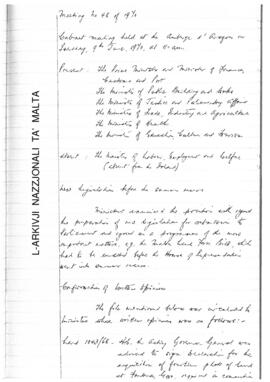 L-ARKIVJI NAZZJONALI TA' MALTA
Meeting No 48 of 1970
Cabinet meeting held at the Auberge d'Aragon on
9th June, 1970, at
Present : The Prime Minister and Minister of Finance,
Customs and Port
The Minister of Public Building and Works
The Minister of Justice and Parliamentary Affairs
The Minister of Trade, Industry and Agriculture
The Minister of Health
The Minister of Education Culture and Tourism
Absent : The Minister of Labour, Employment and Welfare
(absent from the Island)
legislation before the summer recess
Ministers examined the position with regard
the preparation of legislation for submission to
Parliament and agreed on a programme of the more
important matters, eg. the Bill, which
had to be enacted before the House of Representatives
went into summer recess.
Confirmation of written opinions
The file mentioned below was circulated to
Ministers whose written opinion was as follows:-
Acting Governor General was
advised to sign Declaration for the
acquisition of plots of land
at in connection